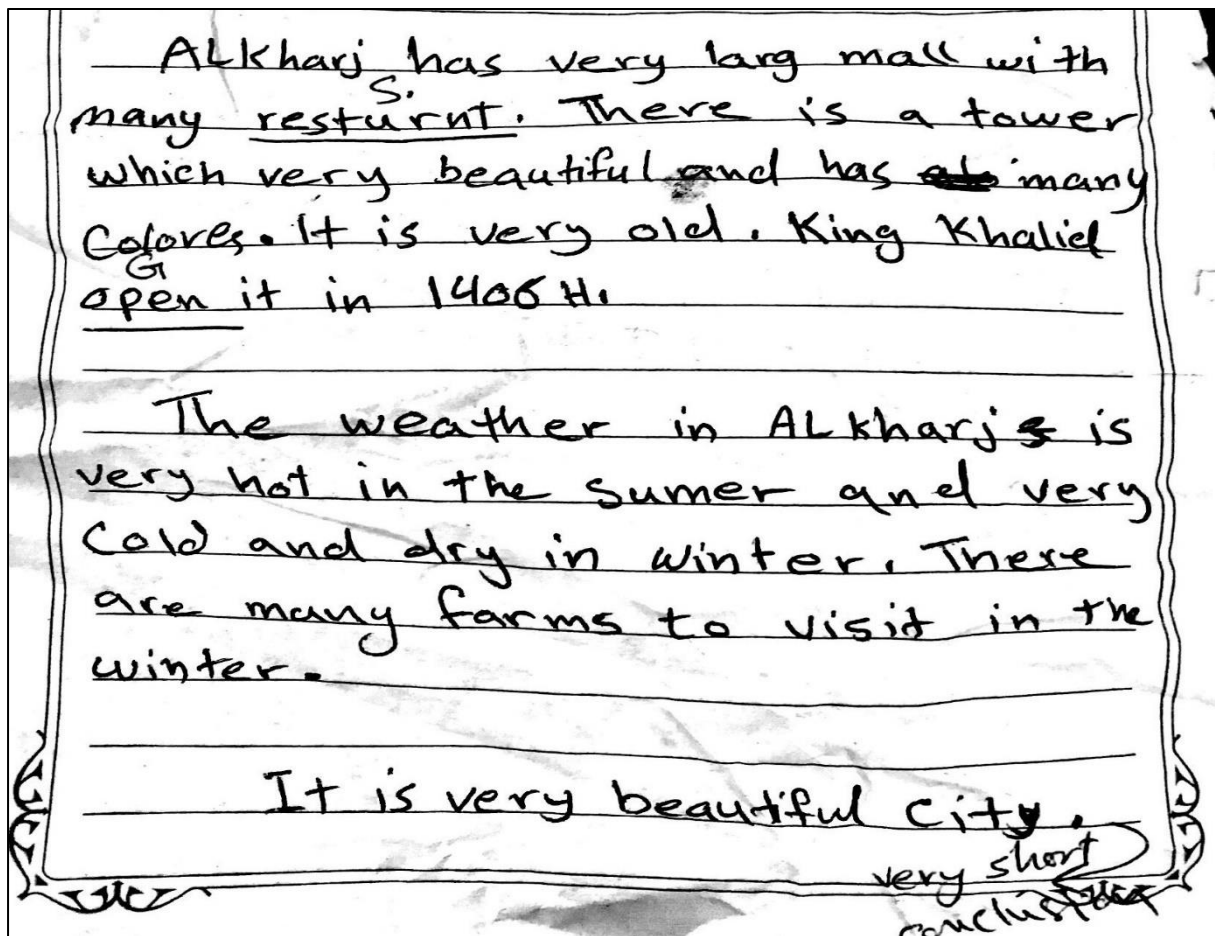 ALKharj has very larg mall with
S.
many resturnt. There is a tower
which very beautiful and has many
Colores. It is very old. King Khalid
G
open it in 1406 H.
The weather in ALKharj is
very hot in the sumer and very
Cold and dry in winter. There
are many farms to visit in the
winter.
It is very beautiful City.
very short
conclusion